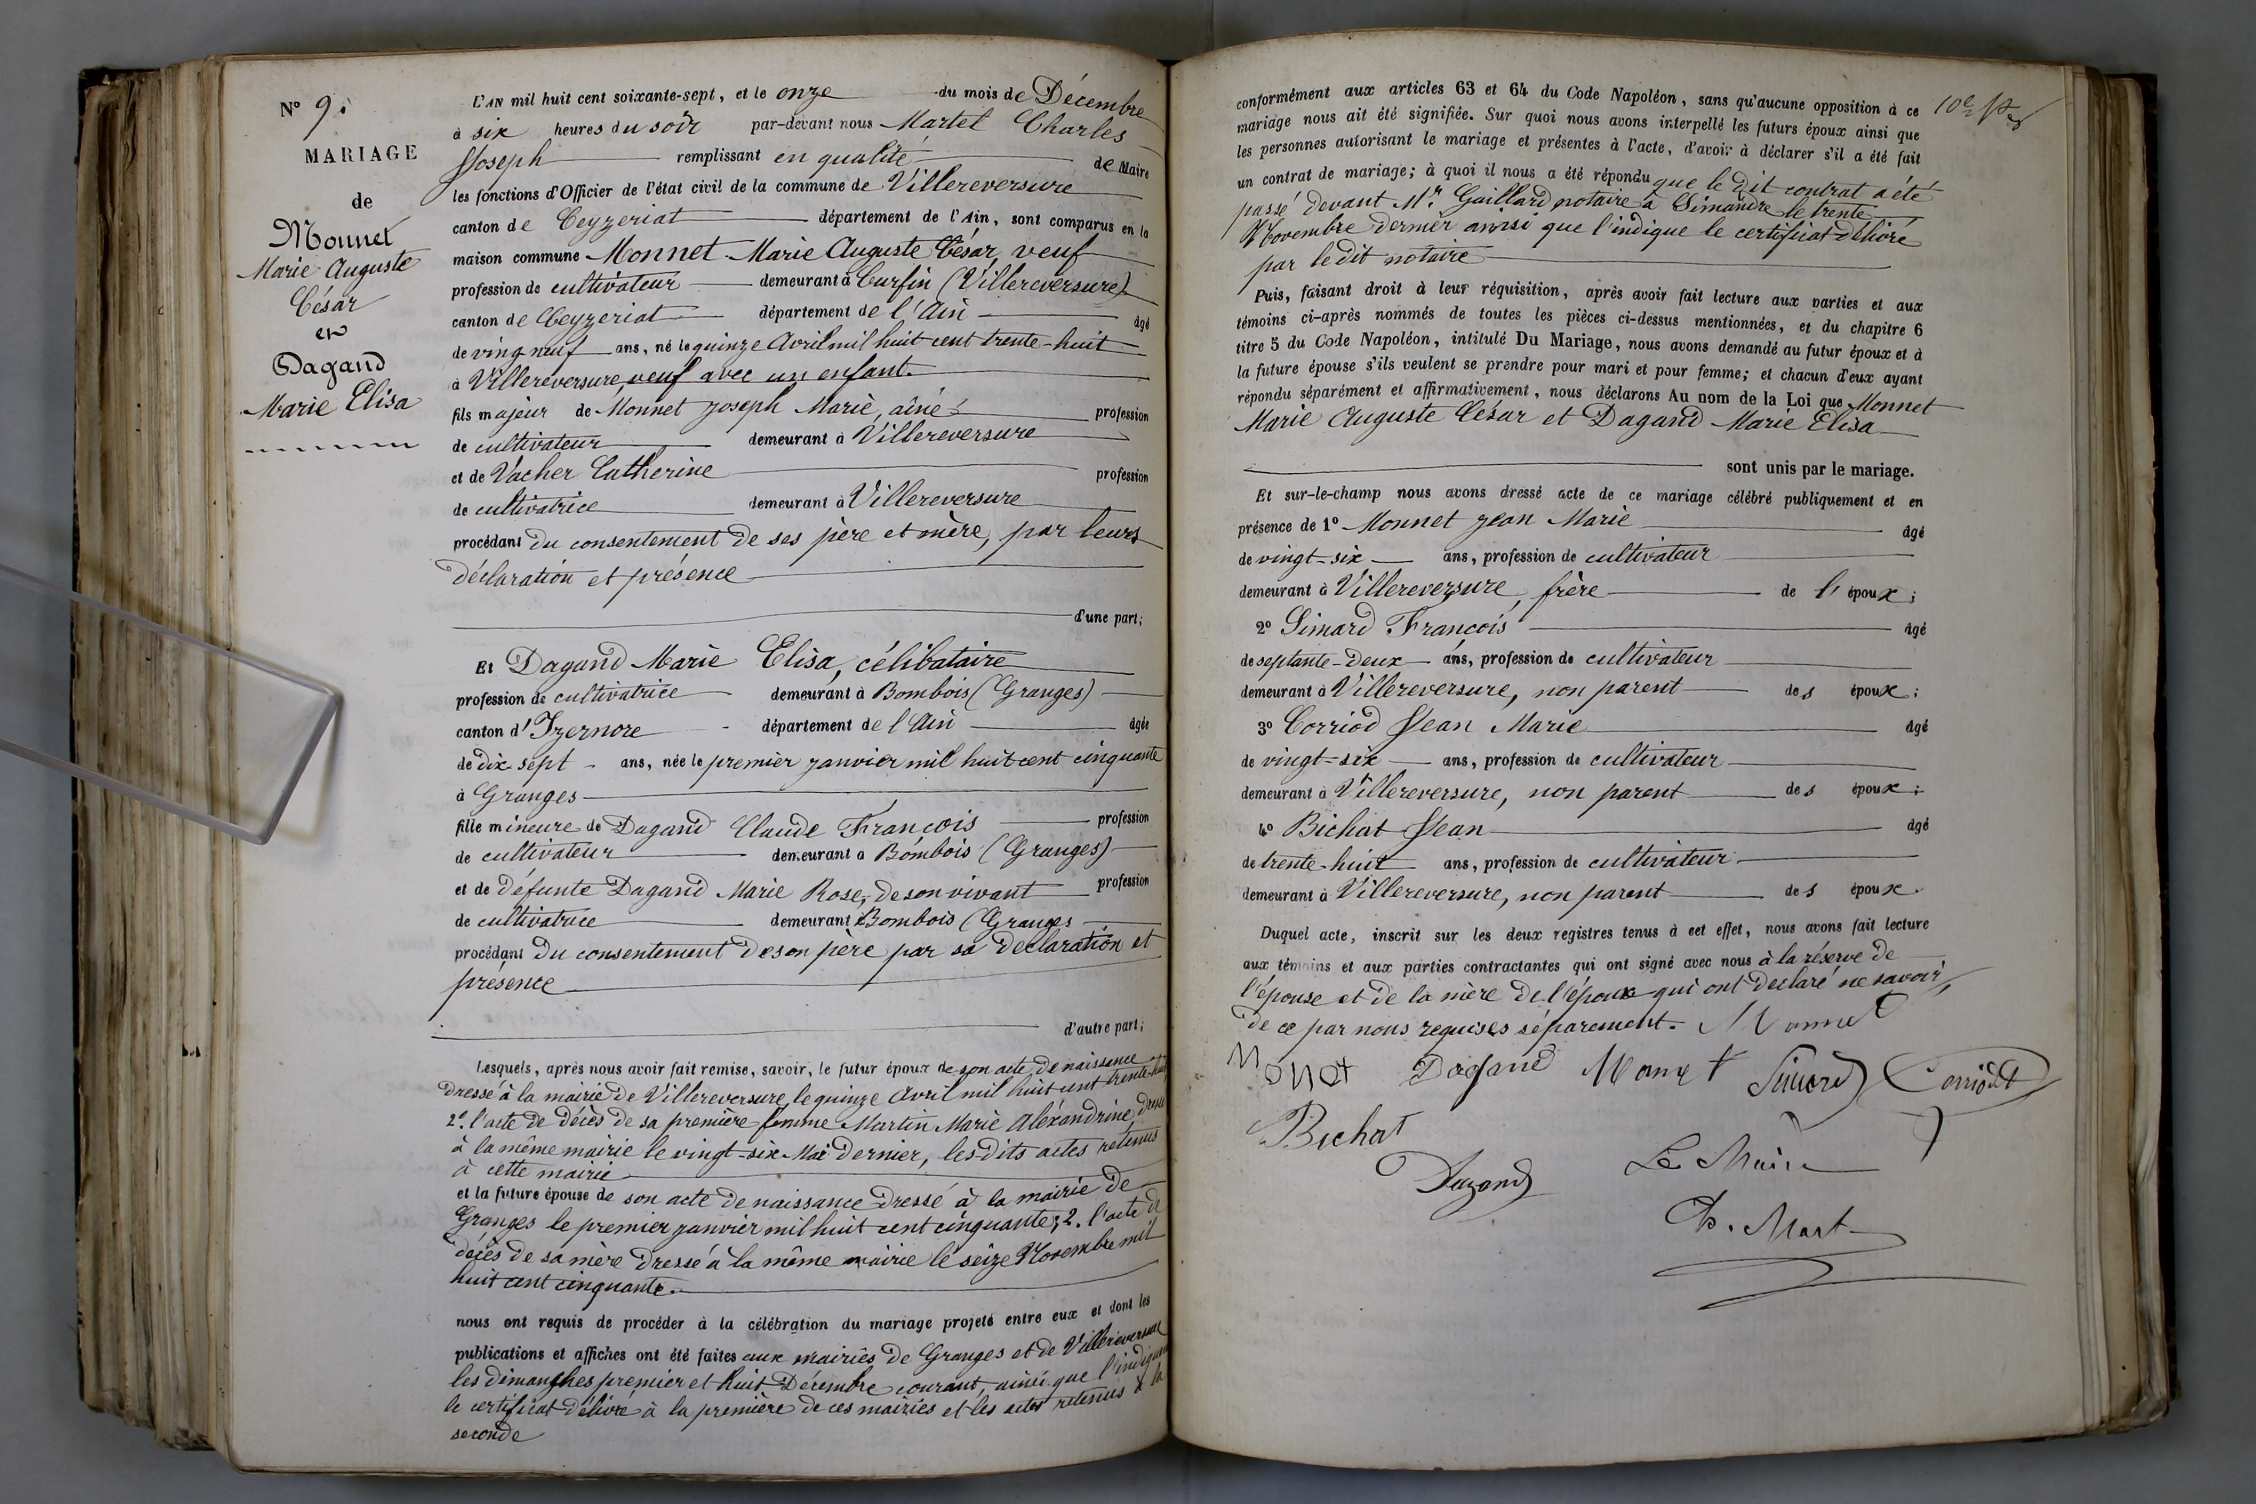 N° 9.
MARIAGE
de
Monnet
Marie Auguste
César
et
Dagand
Marie Elisa
L'AN mil huit cent soixante-sept, et le onze du mois de Décembre
à six heures du soir par-devant nous Martel Charles
Joseph remplissant en qualité de Maire
les fonctions d'Officier de l'état civil de la commune de Villereversure
canton de Ceyzeriat département de l'Ain, sont comparus en la
maison commune Monnet Marie Auguste César, veuf
profession de cultivateur demeurant à Curfin (Villereversure)
canton de Ceyzeriat département de l'Ain âgé
de ving neuf ans, né le quinze Avril mil huit cent trente-huit
à Villereversure, veuf avec un enfant.
fils majeur de Monnet Joseph Marie, aîné profession
de cultivateur demeurant à Villereversure
et de Vacher Catherine profession
de cultivatrice demeurant à Villereversure
procédant du consentement de ses père et mère, par leurs
déclaration et présence
d'une part;
Et Dagand Marie Elisa, célibataire
profession de cultivatrice demeurant à Bombois (Granges)
canton d'Izernore département de l'Ain âgée
de dix sept ans, née le premier janvier mil huit cent cinquante
à Granges
fille mineure de Dagand Claude François profession
de cultivateur demeurant à Bombois (Granges)
et de défunte Dagand Marie Rose, de son vivant profession
de cultivatrice demeurant à Bombois (Granges
procédant du consentement de son père par sa déclaration et
présence
d'autre part;
Lesquels, après nous avoir fait remise, savoir, le futur époux de son acte de naissance
dressé à la mairie de Villereversure, le quinze Avril mil huit cent trente-huit
2°. l'acte de décès de sa première femme Martin Marie Aléxandrine, dressé
à la même mairie le vingt-six Mai dernier, les dits actes retenus
à cette mairie
et la future épouse de son acte de naissance dressé à la mairie de
Granges le premier janvier mil huit cent cinquante; 2. l'acte de
décès de sa mère dressé à la même mairie le seize Novembre mil
huit cent cinquante.
nous ont requis de procéder à la célébration du mariage projeté entre eux et dont les
publications et affiches ont été faites aux mairies de Granges et de Villereversure
les dimanches premier et huit Décembre courant, ainsi que l'indiquent
le certificat délivré à la première de ces mairies et les actes retenus à la
seconde
conformément aux articles 63 et 64 du Code Napoléon, sans qu'aucune opposition à ce
mariage nous ait été signifiée. Sur quoi nous avons interpellé les futurs époux ainsi que
les personnes autorisant le mariage et présentes à l'acte, d'avoir à déclarer s'il a été fait
un contrat de mariage; à quoi il nous a été répondu que le dit contrat a été
passé devant Mr. Gaillard notaire à Simandre le trente
Novembre dernier ainsi que l'indique le certificat délivré
par le dit notaire
Puis, faisant droit à leur réquisition, après avoir fait lecture aux parties et aux
témoins ci-après nommés de toutes les pièces ci-dessus mentionnées, et du chapitre 6
titre 5 du Code Napoléon, intitulé Du Mariage, nous avons demandé au futur époux et à
la future épouse s'ils veulent se prendre pour mari et pour femme; et chacun d'eux ayant
répondu séparément et affirmativement, nous déclarons Au nom de la Loi que Monnet
Marie Auguste César et Dagand Marie Elisa
sont unis par le mariage.
Et sur-le-champ nous avons dressé acte de ce mariage célébré publiquement et en
présence de 1° Monnet Jean Marie âgé
de vingt-six ans, profession de cultivateur
demeurant à Villereversure, frère de l'époux;
2° Simard François âgé
de septante-deux ans, profession de cultivateur
demeurant à Villereversure, non parent des époux;
3° Corriod Jean Marie âgé
de vingt-six ans, profession de cultivateur
demeurant à Villereversure, non parent des époux;
4° Bichat Jean âgé
de trente-huit ans, profession de cultivateur
demeurant à Villereversure, non parent des époux.
Duquel acte, inscrit sur les deux registres tenus à cet effet, nous avons fait lecture
aux témoins et aux parties contractantes qui ont signé avec nous à la réserve de
l'épouse et de la mère de l'époux qui ont déclaré ne savoir,
de ce par nous requises séparement. Monnet
Monet Dagand Monnet Simard Corriod
Bichat
Dagand Le Maire
Ch. Martel